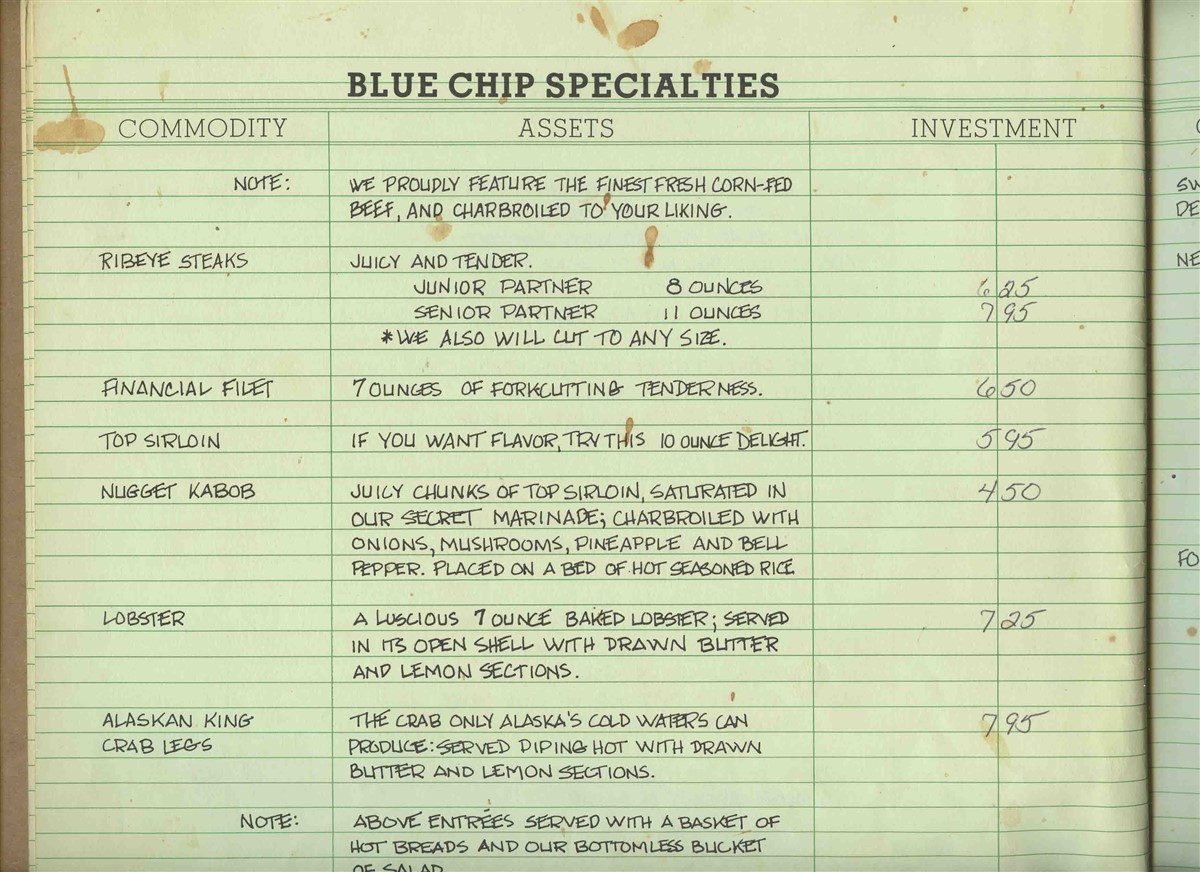 BLUE CHIP SPECIALTIES
COMMODITY ASSETS INVESTMENT
NOTE: WE PROUDLY FEATURE THE FINEST FRESH CORN-FED
BEEF, AND CHARBROILED TO YOUR LIKING.
RIBEYE STEAKS JUICY AND TENDER.
JUNIOR PARTNER 8 OUNCES 6 25
SENIOR PARTNER 11 OUNCES 7 95
*WE ALSO WILL CUT TO ANY SIZE.
FINANCIAL FILET 7 OUNCES OF FORKCUTTING TENDERNESS. 6 50
TOP SIRLOIN IF YOU WANT FLAVOR, TRY THIS 10 OUNCE DELIGHT. 5 95
NUGGET KABOB JUICY CHUNKS OF TOP SIRLOIN, SATURATED IN 4 50
OUR SECRET MARINADE; CHARBROILED WITH
ONIONS, MUSHROOMS, PINEAPPLE AND BELL
PEPPER. PLACED ON A BED OF HOT SEASONED RICE
LOBSTER A LUSCIOUS 7 OUNCE BAKED LOBSTER; SERVED 7 25
IN ITS OPEN SHELL WITH DRAWN BUTTER
AND LEMON SECTIONS.
ALASKAN KING THE CRAB ONLY ALASKA'S COLD WATERS CAN 7 95
CRAB LEGS PRODUCE: SERVED PIPING HOT WITH DRAWN
BUTTER AND LEMON SECTIONS.
NOTE: ABOVE ENTRÉES SERVED WITH A BASKET OF
HOT BREADS AND OUR BOTTOMLESS BUCKET
OF SALAD
SW
DE
NE
FO